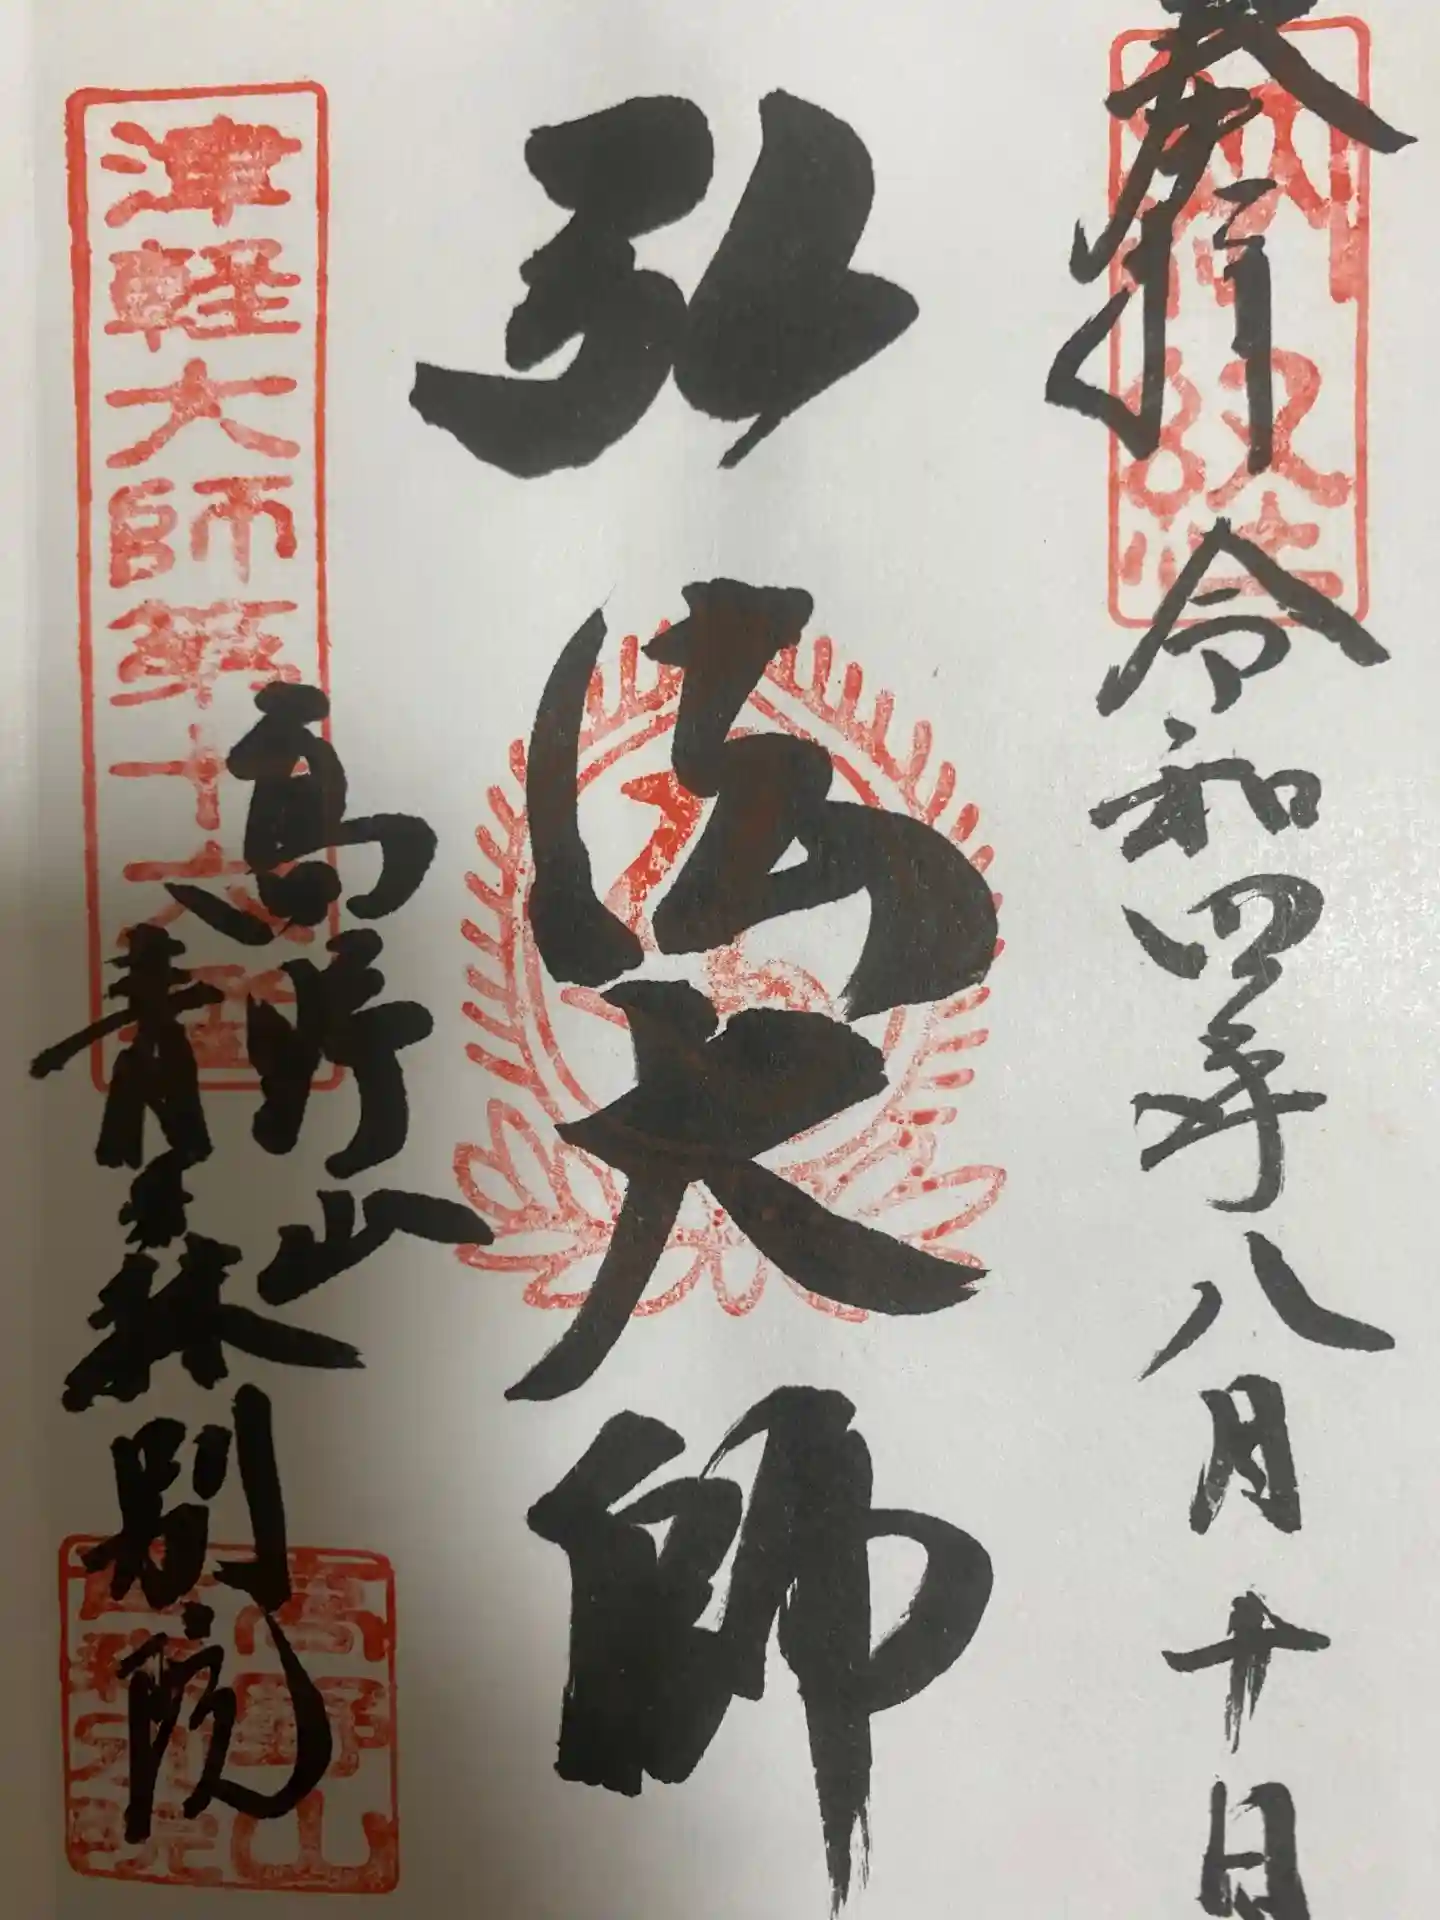 奉拝
令和四年八月十日
弘法大師
津軽大師第十六番
高野山
青森別院
高野山
青森別院